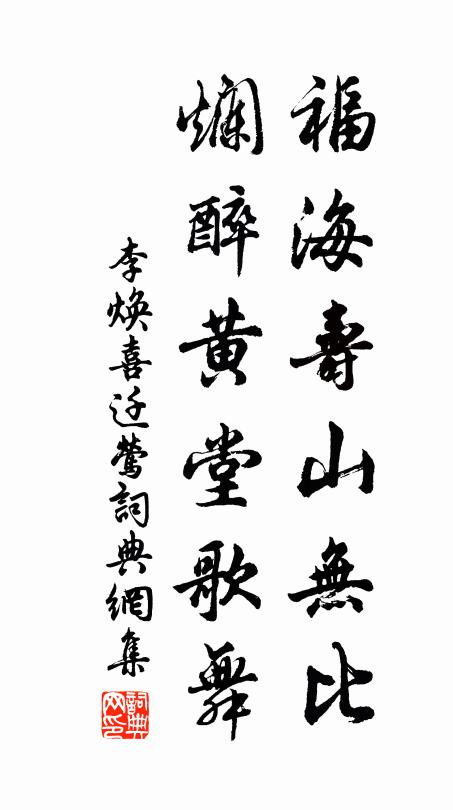 福海壽山無比
爛醉黃堂歌舞
李煥喜迁鶯詞典網集
詞典網印